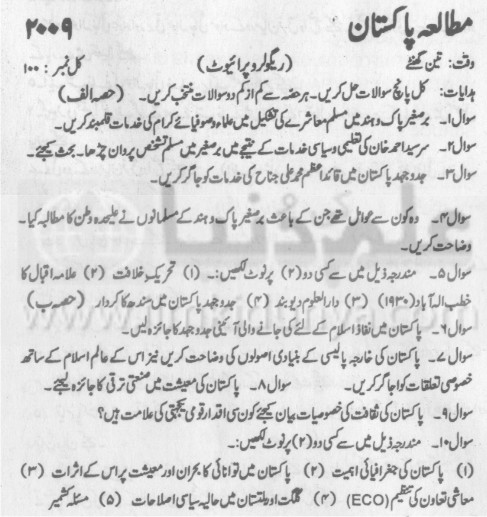 مطالعہ پاکستان ۲۰۰۹
وقت: تین گھنٹے (ریگولر و پرائیوٹ) کل نمبر: ۱۰۰
ہدایات: کل پانچ سوالات حل کریں۔ ہر حصہ سے کم از کم دو سوالات منتخب کریں۔ (حصہ الف)
سوال۱۔ برصغیر پاک و ہند میں مسلم معاشرے کی تشکیل میں علماء و صوفیائے کرام کی خدمات قلمبند کریں۔
سوال۲۔ سر سید احمد خان کی تعلیمی و سیاسی خدمات کے نتیجے میں برصغیر میں مسلم تشخص پروان چڑھا۔ بحث کیجئے۔
سوال۳۔ جدوجہد پاکستان میں قائد اعظم محمد علی جناح کی خدمات کو اجاگر کریں۔
سوال۴۔ وہ کون سے عوامل تھے جن کے باعث برصغیر پاک و ہند کے مسلمانوں نے علیحدہ وطن کا مطالبہ کیا۔
وضاحت کریں۔
سوال ۵۔ مندرجہ ذیل میں سے کسی دو (۲) پر نوٹ لکھیں:۔ (۱) تحریک خلافت (۲) علامہ اقبال کا
خطبہ الہ آباد (۱۹۳۰) (۳) دارالعلوم دیوبند (۴) جدوجہد پاکستان میں سندھ کا کردار (حصہ ب)
سوال ۶۔ پاکستان میں نفاذ اسلام کے لئے کی جانے والی آئینی جدوجہد کا جائزہ لیں۔
سوال ۷۔ پاکستان کی خارجہ پالیسی کے بنیادی اصولوں کی وضاحت کریں نیز اس کے عالم اسلام کے ساتھ
خصوصی تعلقات کو اجاگر کریں۔ سوال ۸۔ پاکستان کی معیشت میں صنعتی ترقی کا جائزہ لیجئے۔
سوال ۹۔ پاکستان کی ثقافت کی خصوصیات بیان کیجئے کون سی اقدار قومی یکجہتی کی علامت ہیں؟
سوال۱۰۔ مندرجہ ذیل میں سے کسی دو (۲) پر نوٹ لکھیں:۔
(۱) پاکستان کی جغرافیائی اہمیت (۲) پاکستان میں توانائی کا بحران اور معیشت پر اس کے اثرات (۳)
معاشی تعاون کی تنظیم (ECO) (۴) گلگت اور بلتستان میں حالیہ سیاسی اصلاحات (۵) مسئلہ کشمیر
علم کی دنیا
www.ilmkidunya.com